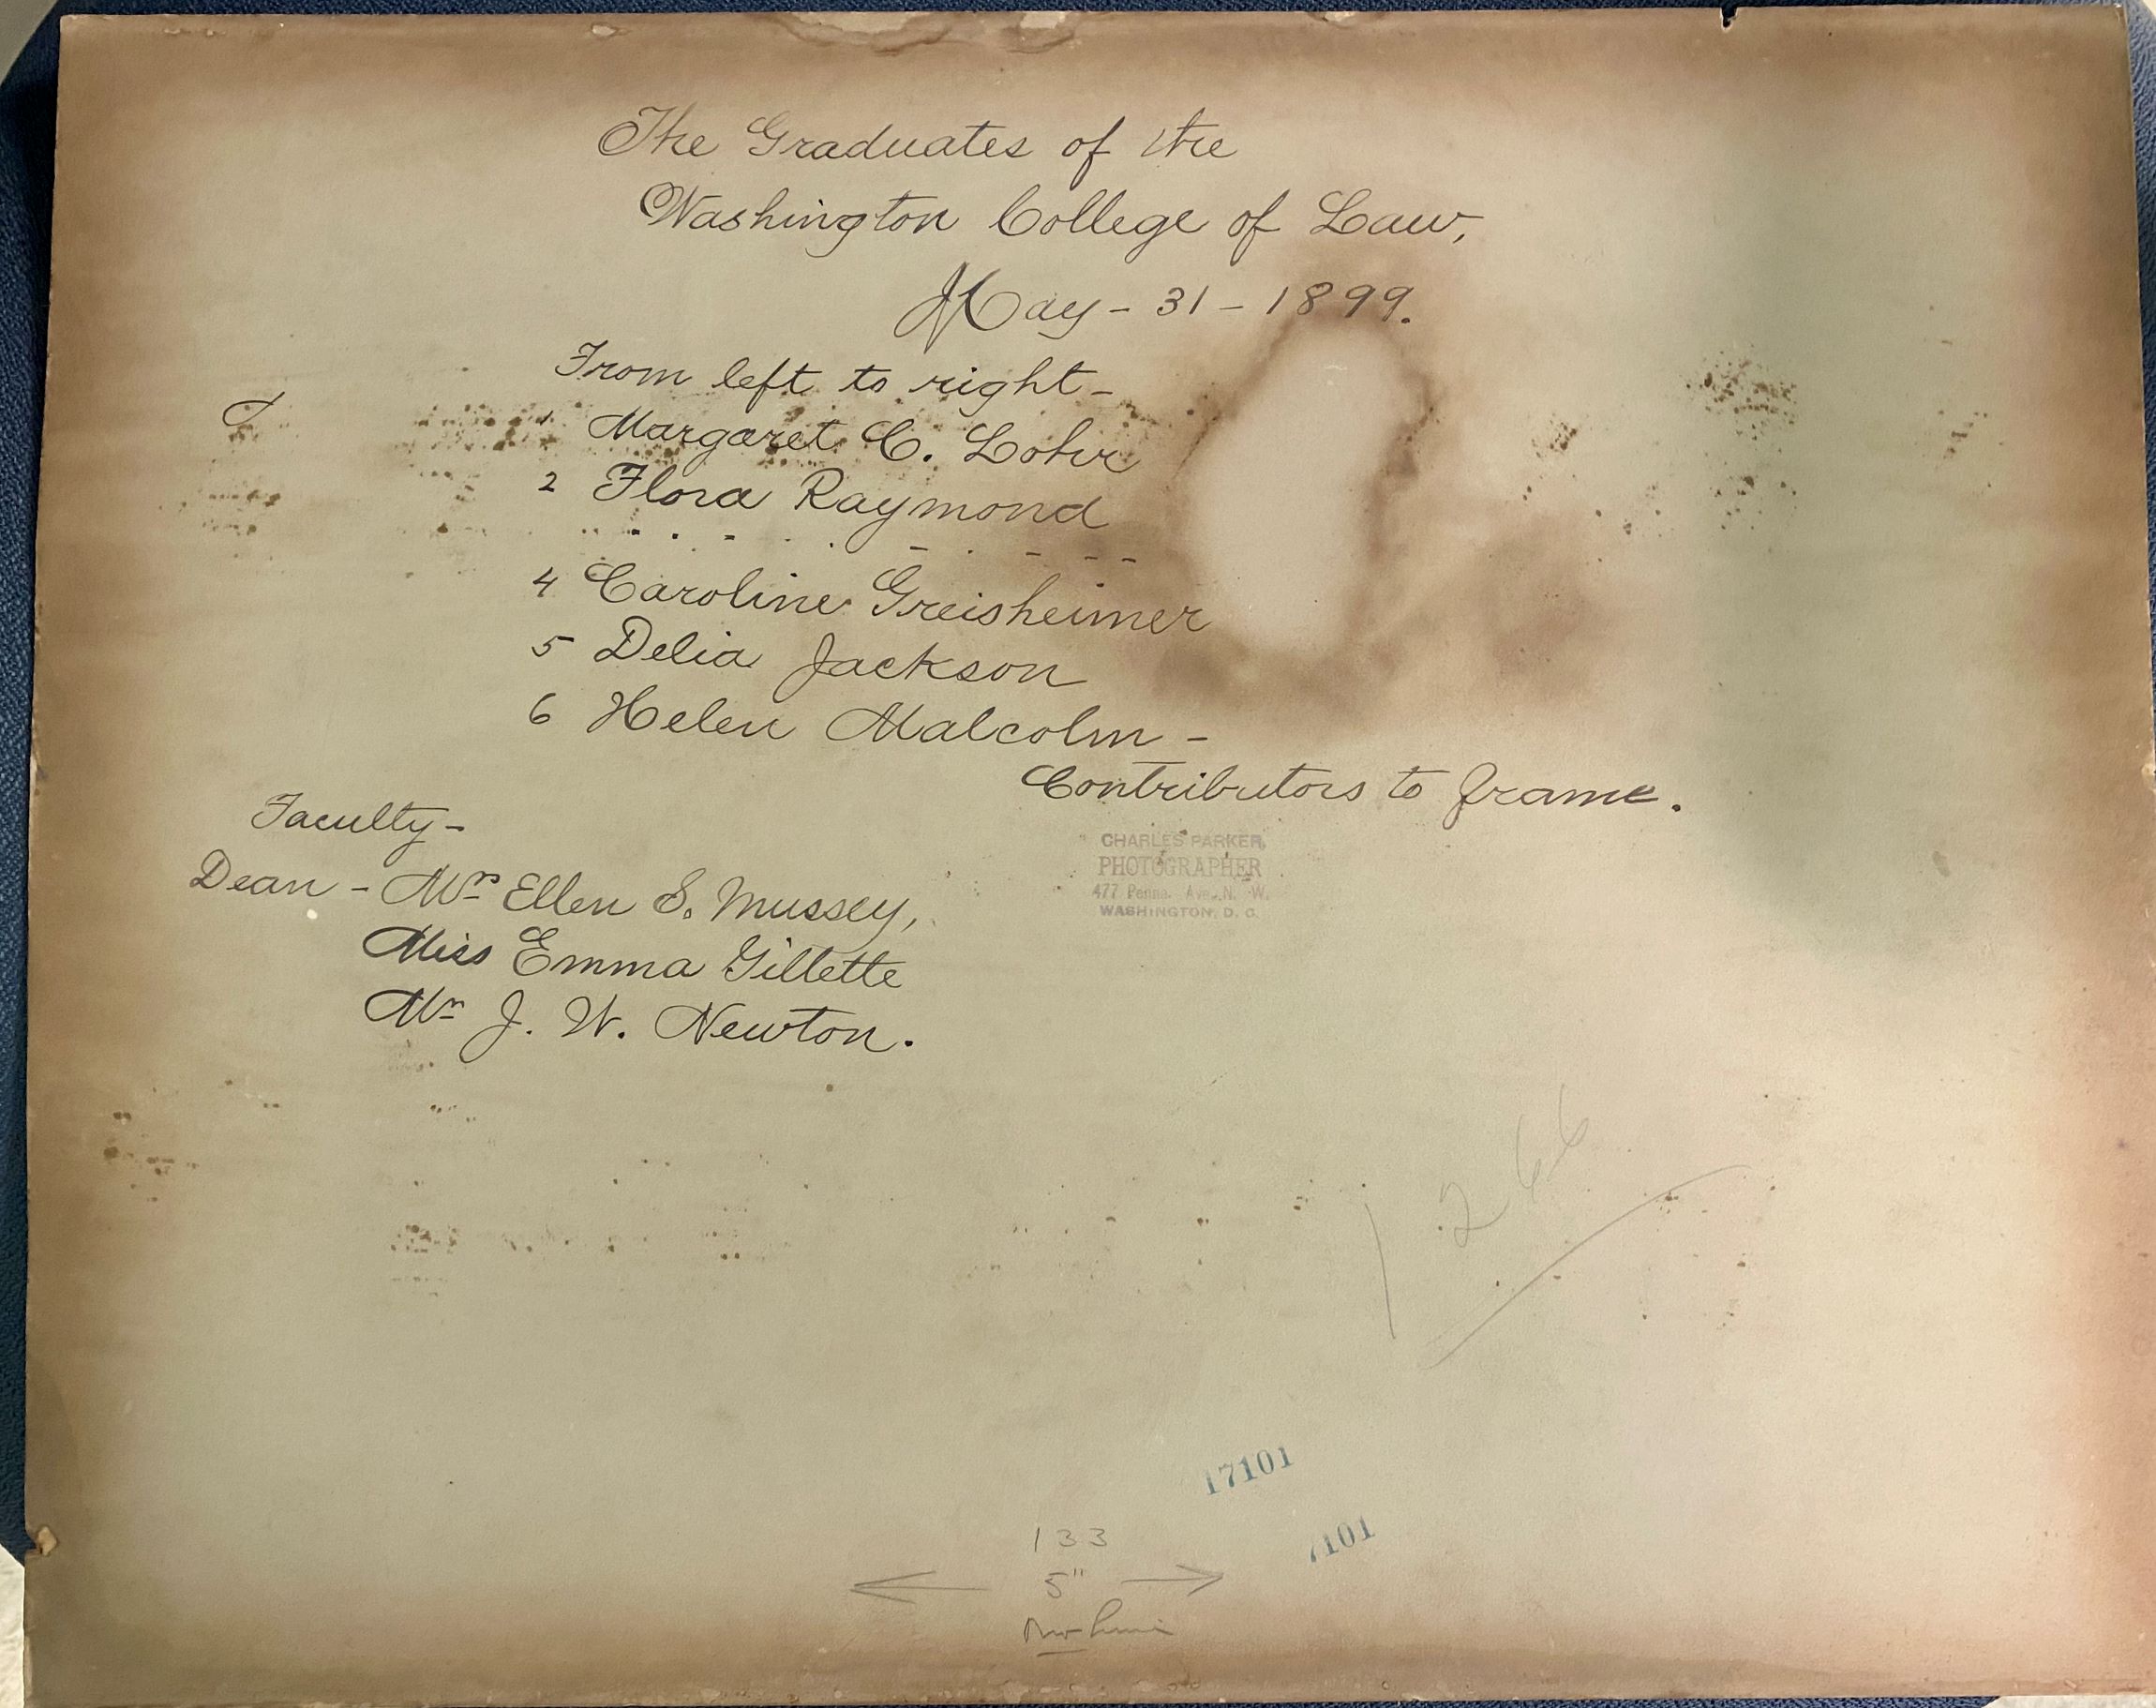 The Graduates of the
Washington College of Law,
May - 31 - 1899.
From left to right -
1 Margaret C. Lohr
2 Flora Raymond
4 Caroline Greisheimer
5 Delia Jackson
6 Helen Malcolm -
Contributors to frame.
Faculty -
Dean - Mrs Ellen S. Mussey,
Miss Emma Gillette
Mr J. W. Newton.
CHARLES PARKER,
PHOTOGRAPHER
477 Penna. Ave. N. W.
WASHINGTON, D. C.
1 266
17101
7101
133
5"